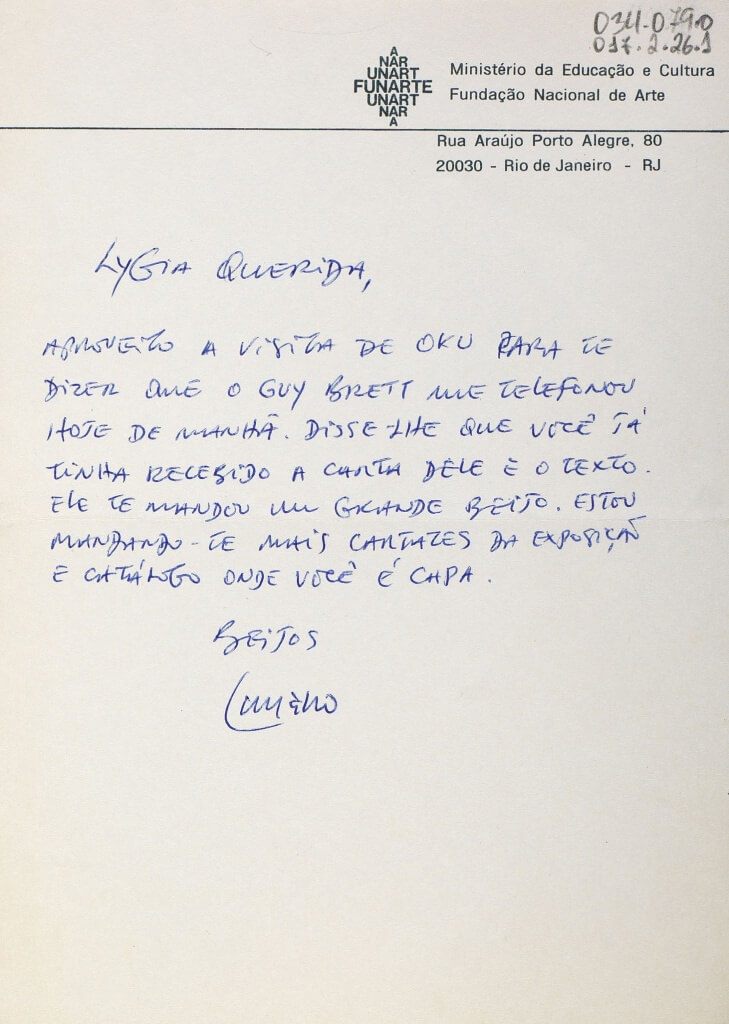 034.079.0
017.2.26.1
A
NAR
UNART
FUNARTE
UNART
NAR
A
Ministério da Educação e Cultura
Fundação Nacional de Arte
Rua Araújo Porto Alegre, 80
20030 - Rio de Janeiro - RJ
LYGIA QUERIDA,
APROVEITO A VISITA DE OKU PARA TE
DIZER QUE O GUY BRETT ME TELEFONOU
HOJE DE MANHÃ. DISSE-LHE QUE VOCÊ JÁ
TINHA RECEBIDO A CARTA DELE E O TEXTO.
ELE TE MANDOU UM GRANDE BEIJO. ESTOU
MANDANDO-TE MAIS CARTAZES DA EXPOSIÇÃO
E CATÁLOGO ONDE VOCÊ É CAPA.
BEIJOS